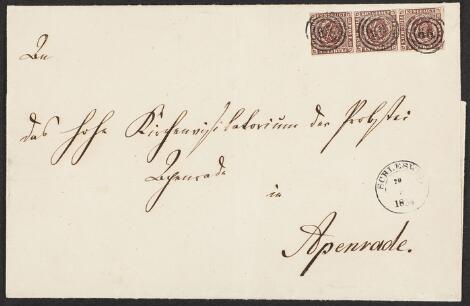 An
das hohe Kirchenvisitatorium der Probstei
Apenrade
in
Apenrade.
SCHLESW